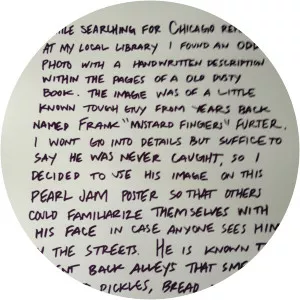 SEARCHING FOR CHICAGO
AT MY LOCAL LIBRARY I FOUND AN ODD
PHOTO WITH A HANDWRITTEN DESCRIPTION
WITHIN THE PAGES OF A OLD DUSTY
BOOK. THE IMAGE WAS OF A LITTLE
KNOWN TOUGH GUY FROM YEARS BACK
NAMED FRANK "MUSTARD FINGERS" FURTER.
I WONT GO INTO DETAILS BUT SUFFICE TO
SAY HE WAS NEVER CAUGHT, SO I
DECIDED TO USE HIS IMAGE ON THIS
PEARL JAM POSTER SO THAT OTHERS
COULD FAMILIARIZE THEMSELVES WITH
HIS FACE IN CASE ANYONE SEES HIM
THE STREETS. HE IS KNOWN
BACK ALLEYS THAT
PICKLES, BREAD